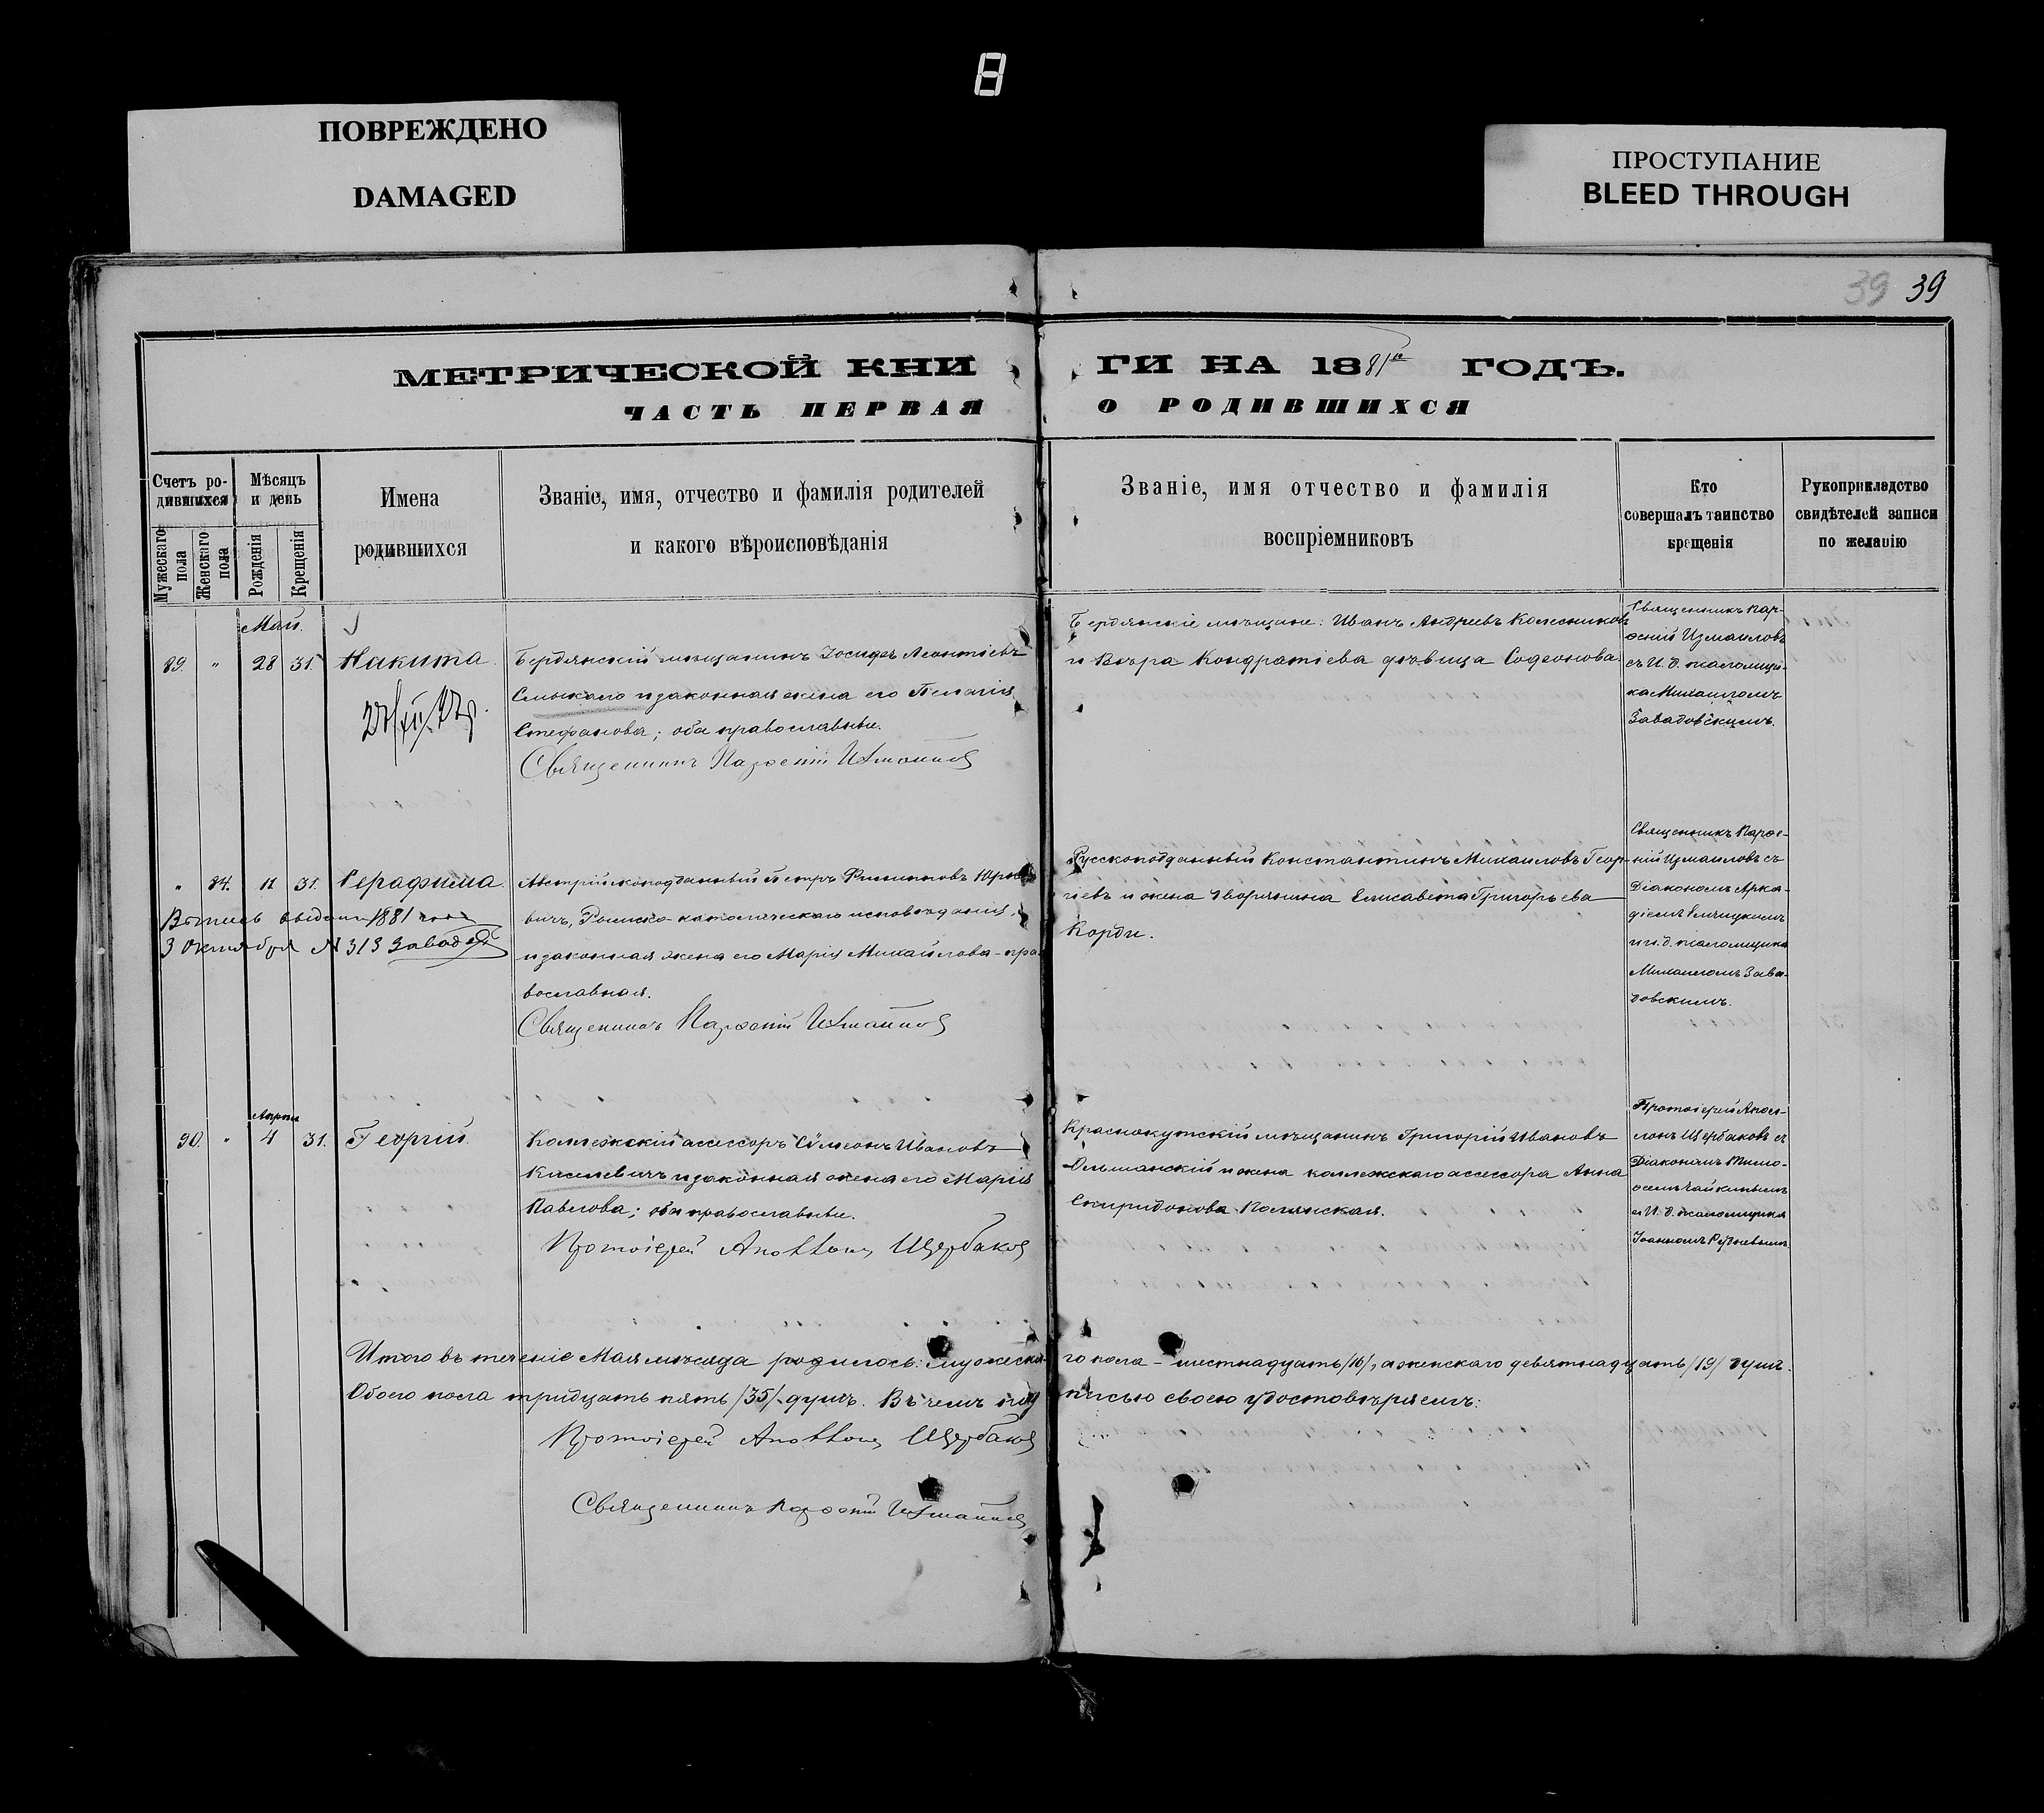 8
ПОВРЕЖДЕНО
DAMAGED
ПРОСТУПАНИЕ
BLEED THROUGH
39 39
МЕТРИЧЕСКОЙ КНИ
ГИ НА 1881го ГОДЪ.
ЧАСТЬ ПЕРВАЯ
О РОДИВШИХСЯ
Счетъ ро-
дившихся
Мужескаго пола
Женскаго пола
Мѣсяцъ
и день
Рожденія
Крещенія
Имена
родившихся
Званіе, имя, отчество и фамилія родителей
и какого вѣроисповѣданія
Званіе, имя отчество и фамилія
воспріемниковъ
Кто
совершалъ таинство
крещенія
Рукоприкладство
свидѣтелей записи
по желанію
Май.
89. " 28 31. Никита.
Бердянскій мѣщанинъ Іосифъ Леонтіевъ
и законная жена его Пелагія
Стефанова; оба православные.
Священникъ Парѳеній Измаиловъ
Бердянскіе мѣщане: Иванъ Андреевъ Колесниковъ
и Вѣра Кондратіева дѣвица
Священникъ Пар-
ѳеній Измаиловъ
съ И. д. псаломщи-
ка Михаиломъ
Завадовскимъ.
" 84. 11 31. Серафима.
Выпись выдана 1881 года
3 Октября № 313
Австрійскоподданный Петръ Филипповъ
вичъ, Римско-католическаго исповѣданія,
и законная жена его Марія Михайлова - пра-
вославная.
Священникъ Парѳеній Измаиловъ
Русскоподданный Константинъ Михаиловъ Геор-
гіевъ и жена дворянина Елисавета Григорьева
Корди.
Священникъ Парѳе-
ній Измаиловъ съ
Діакономъ Арка-
діемъ
и и. д. псаломщика
Михаиломъ Зава-
довскимъ.
Апрѣля
90. " 4 31. Георгій.
Коллежскій ассессоръ Сѵмеонъ Ивановъ
Киселевичъ и законная жена его Марія
Павлова; оба православные.
Протоіерей Аполлонъ Щербаковъ
Краснокутскій мѣщанинъ Григорій Ивановъ
Ольшанскій и жена коллежскаго ассессора Анна
Спиридонова Полянская.
Протоіерей Апол-
лонъ Щербаковъ съ
Діакономъ Тимо-
ѳеемъ Чайкинымъ
и И. д. псаломщика
Іоанномъ
Итого въ теченіе Мая мѣсяца родилось: мужеска- го пола - шестнадцать /16/, а женскаго девятнадцать /19/ душъ.
Обоего пола тридцать пять /35/ душъ. Въ чемъ под- писью своею удостовѣряемъ:
Протоіерей Аполлонъ Щербаковъ
Священникъ Парѳеній Измаиловъ